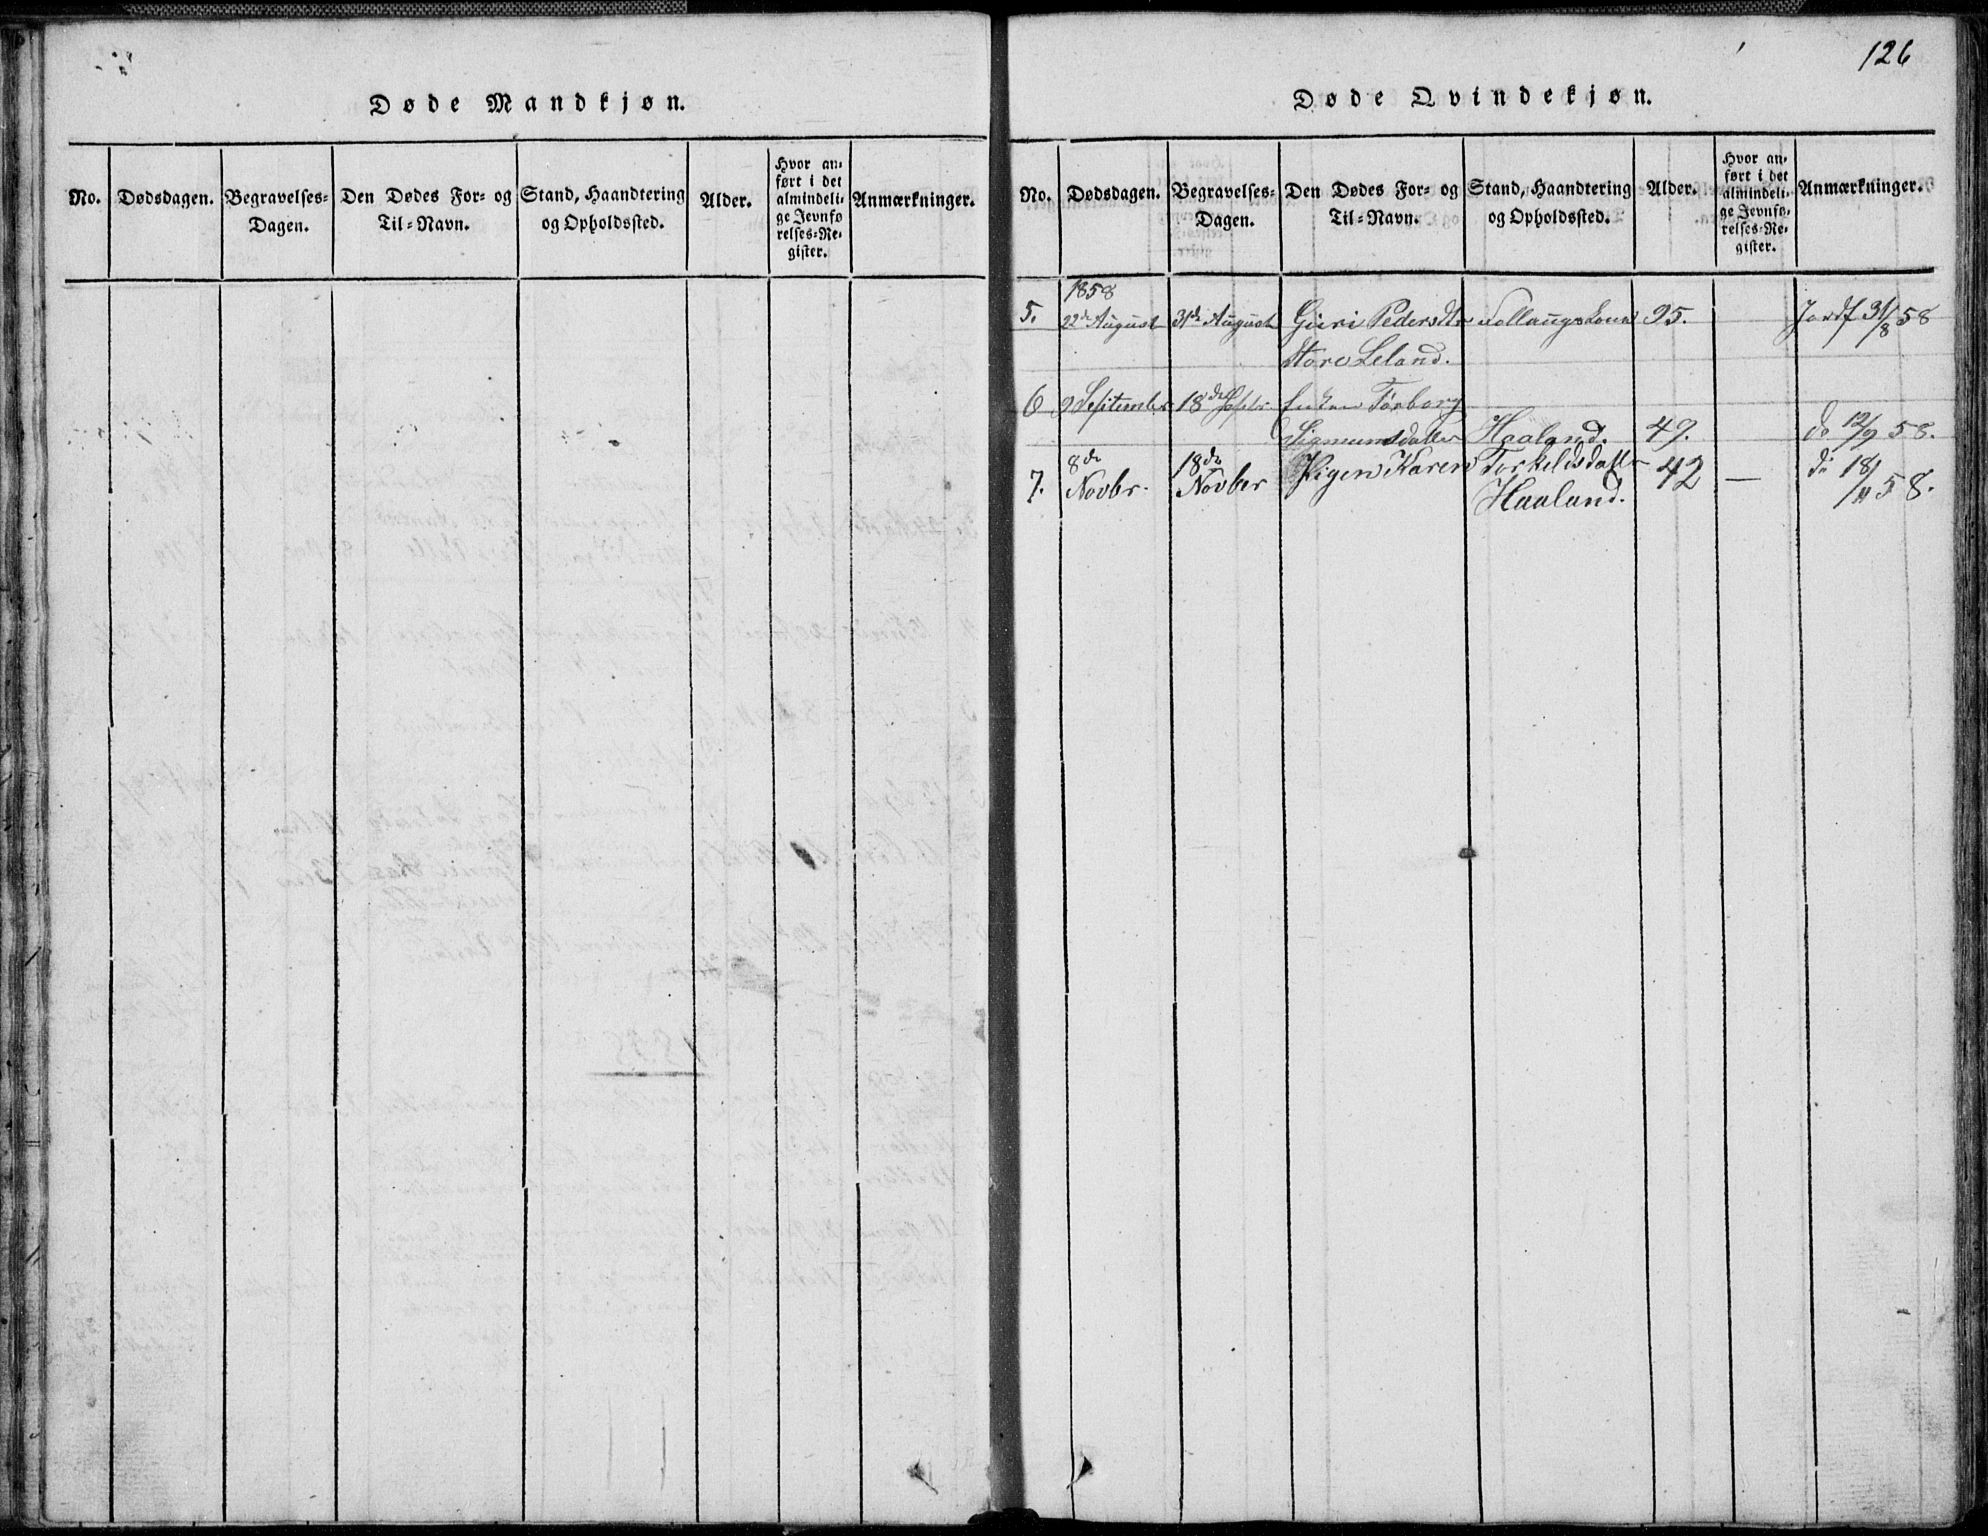 Døde Mandkjøn.
No.
Dødsdagen.
Begravelses-
Dagen.
Den Dødes For- og
Til-Navn.
Stand, Haandtering
og Opholdssted.
Alder.
Hvor an-
ført i det
almindeli-
ge Jevnfø
relses-Re-
gister.
Anmærkninger.
126
Døde Qvindekjøn.
No.
Dødsdagen.
Begravelses-
Dagen.
Den Dødes For- og
Til-Navn.
Stand, Haandtering
og Opholdssted.
Alder.
Hvor an-
ført i det
almindeli-
ge Jevnfø-
relses-Re-
gister.
Anmærkninger.
1858
5. 22de August 31te August Guri Pedersdtr 95. Jordf 31/8 58
Store Leland.
6 9 September 18de Septbr Enken Torborg
Sigmundsdatter Haaland. 49. do 12/9 58.
7. 8de Novbr. 18de Novber Pigen Karen Torkeldsdatter 42 — do 18/11 58.
Haaland.